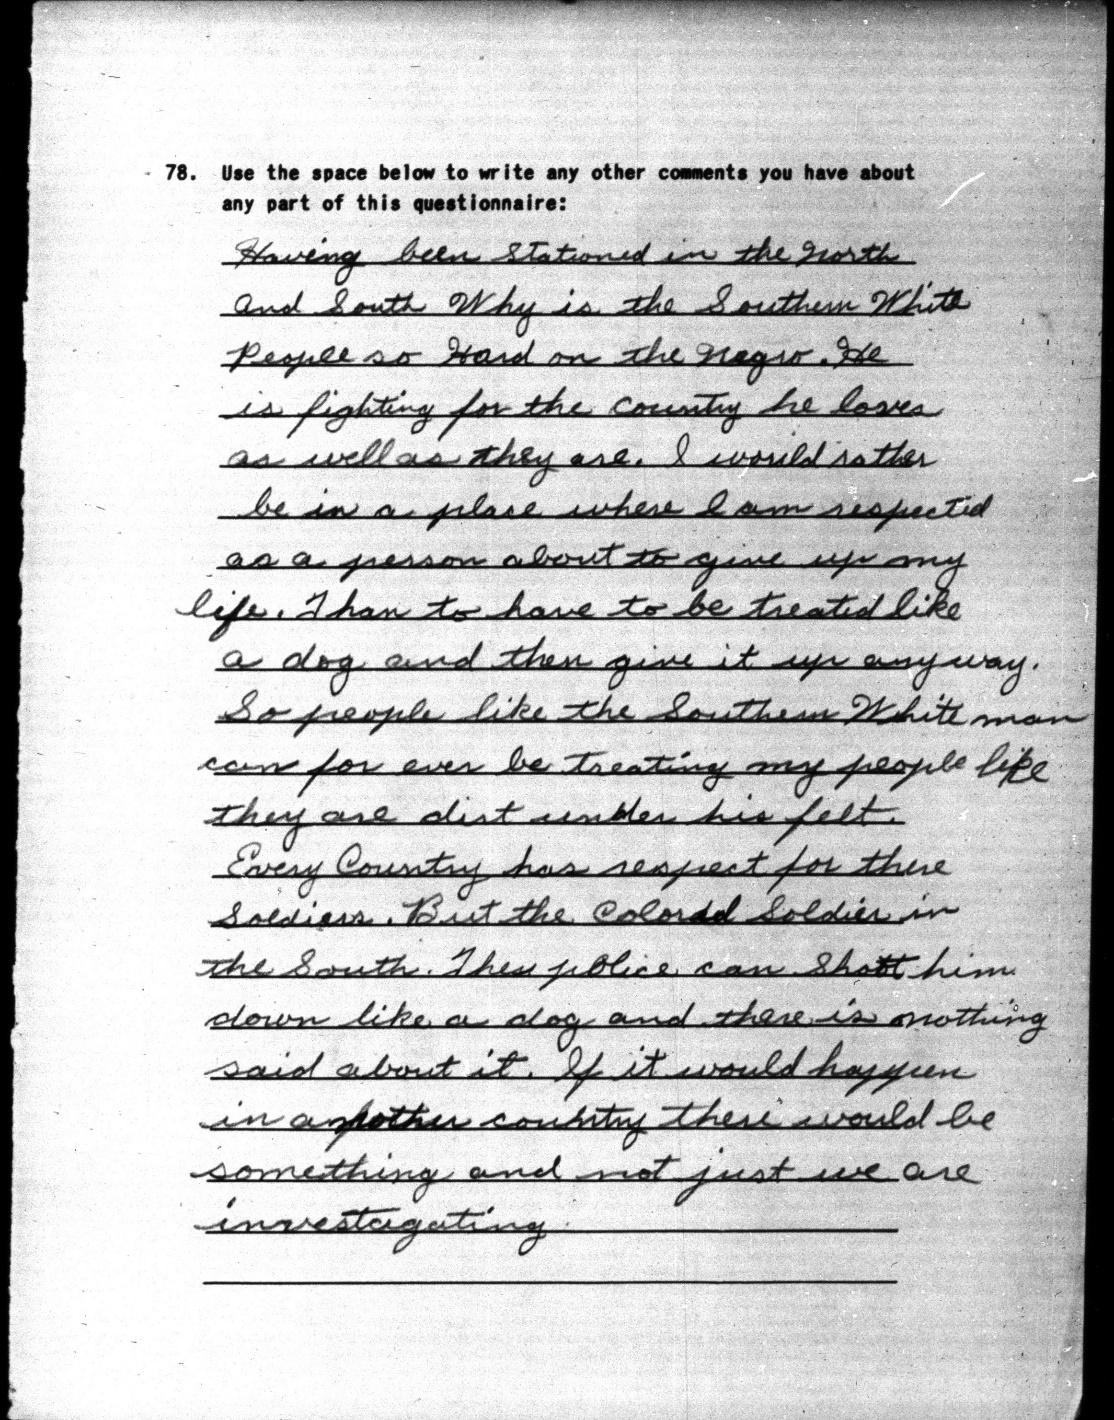 78. Use the space below to write any other comments you have about
any part of this questionnaire:
Having been Stationed in the North
and South Why is the Southern White
People so Hard on the Negro. He
is fighting for the country he loves
as well as they are. I would rather
be in a place where I am respected
as a person about to give up my
life. Than to have to be treated like
a dog and then give it up anyway.
So people like the Southern White man
can for ever be treating my people like
they are dirt under his felt.
Every Country has respect for there
Soldiers. But the Colored Soldier in
the South. The police can Shoot him
down like a dog and there is nothing
said about it. If it would happen
in another country there would be
something and not just we are
investagating